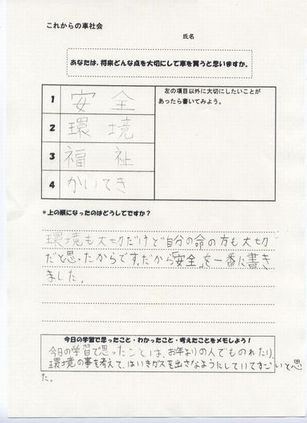 これからの車社会
氏名
あなたは、将来どんな点を大切にして車を買うと思いますか。
1 安全
2 環境
3 福祉
4 かいてき
左の項目以外に大切にしたいことが
あったら書いてみよう。
*上の順になったのはどうしてですか？
環境も大切だけど自分の命の方も大切
だと思ったからです。だから「安全」を一番に書き
ました。
今日の学習で思ったこと・わかったこと・考えたことをメモしよう！
今日の学習で思ったことは、お年よりの人でものれたり、
環境の事を考えて、はいきガスを出さなようにしていてすごいと思っ
た。